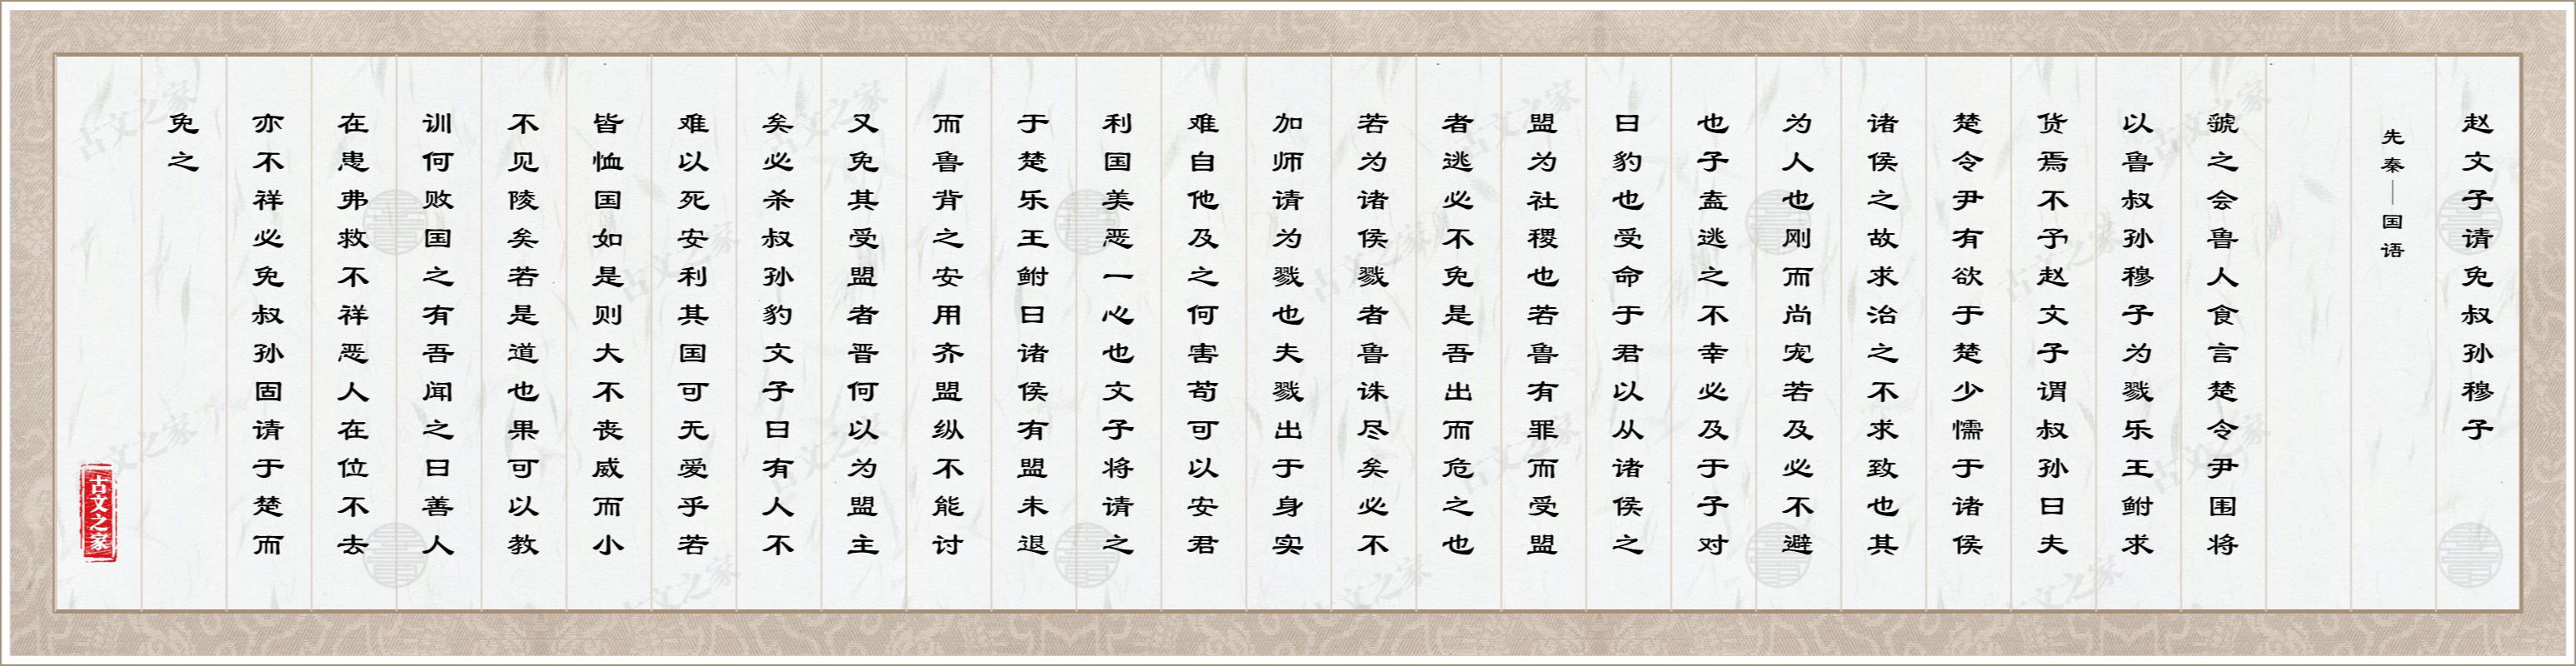 赵文子请免叔孙穆子
先秦｜国语
虢之会鲁人食言楚令尹围将
以鲁叔孙穆子为戮乐王鲋求
货焉不予赵文子谓叔孙曰夫
楚令尹有欲于楚少懦于诸侯
诸侯之故求治之不求致也其
为人也刚而尚宠若及必不避
也子盍逃之不幸必及于子对
曰豹也受命于君以从诸侯之
盟为社稷也若鲁有罪而受盟
者逃必不免是吾出而危之也
若为诸侯戮者鲁诛尽矣必不
加师请为戮也夫戮出于身实
难自他及之何害苟可以安君
利国美恶一心也文子将请之
于楚乐王鲋曰诸侯有盟未退
而鲁背之安用齐盟纵不能讨
又免其受盟者晋何以为盟主
矣必杀叔孙豹文子曰有人不
难以死安利其国可无爱乎若
皆恤国如是则大不丧威而小
不见陵矣若是道也果可以教
训何败国之有吾闻之曰善人
在患弗救不祥恶人在位不去
亦不祥必免叔孙固请于楚而
免之
古文之家